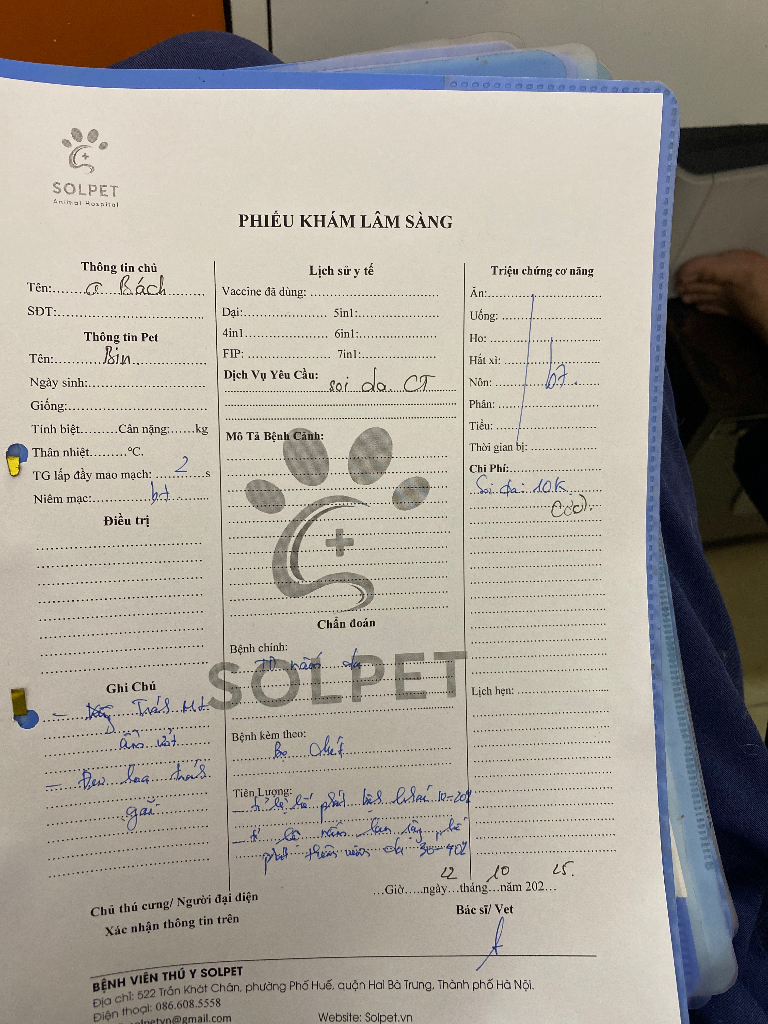 SOLPET
Animal Hospital
PHIẾU KHÁM LÂM SÀNG
Thông tin chủ
Tên: a Bách
SĐT:
Thông tin Pet
Tên: Bin
Ngày sinh:
Giống:
Tính biệt Cân nặng: kg
Thân nhiệt °C.
TG lấp đầy mao mạch: 2 s
Niêm mạc: bt
Điều trị
Ghi Chú
- Tránh
ẩm ướt
- Đeo loa
gãi
Lịch sử y tế
Vaccine đã dùng:
Dại: 5in1:
4in1 6in1:
FIP: 7in1:
Dịch Vụ Yêu Cầu:
soi da CT
Mô Tả Bệnh Cảnh:
SOLPET
Chẩn đoán
Bệnh chính:
TD nấm da
Bệnh kèm theo:
Bọ chét
Tiên Lượng:
phát 10-20%
nấm lan phát 30-40%
Triệu chứng cơ năng
Ăn:
Uống:
Ho:
Hắt xì:
Nôn: bt
Phân:
Tiểu:
Thời gian bị:
Chi Phí:
Soi da: 10K
Lịch hẹn:
Giờ ngày 22 tháng 10 năm 202 25.
Chủ thú cưng/ Người đại diện
Xác nhận thông tin trên
Bác sĩ/ Vet
BỆNH VIỆN THÚ Y SOLPET
Địa chỉ: 522 Trần Khát Chân, phường Phố Huế, quận Hai Bà Trưng, Thành phố Hà Nội.
Điện thoại: 086.608.5558
solpetvn@gmail.com Website: Solpet.vn